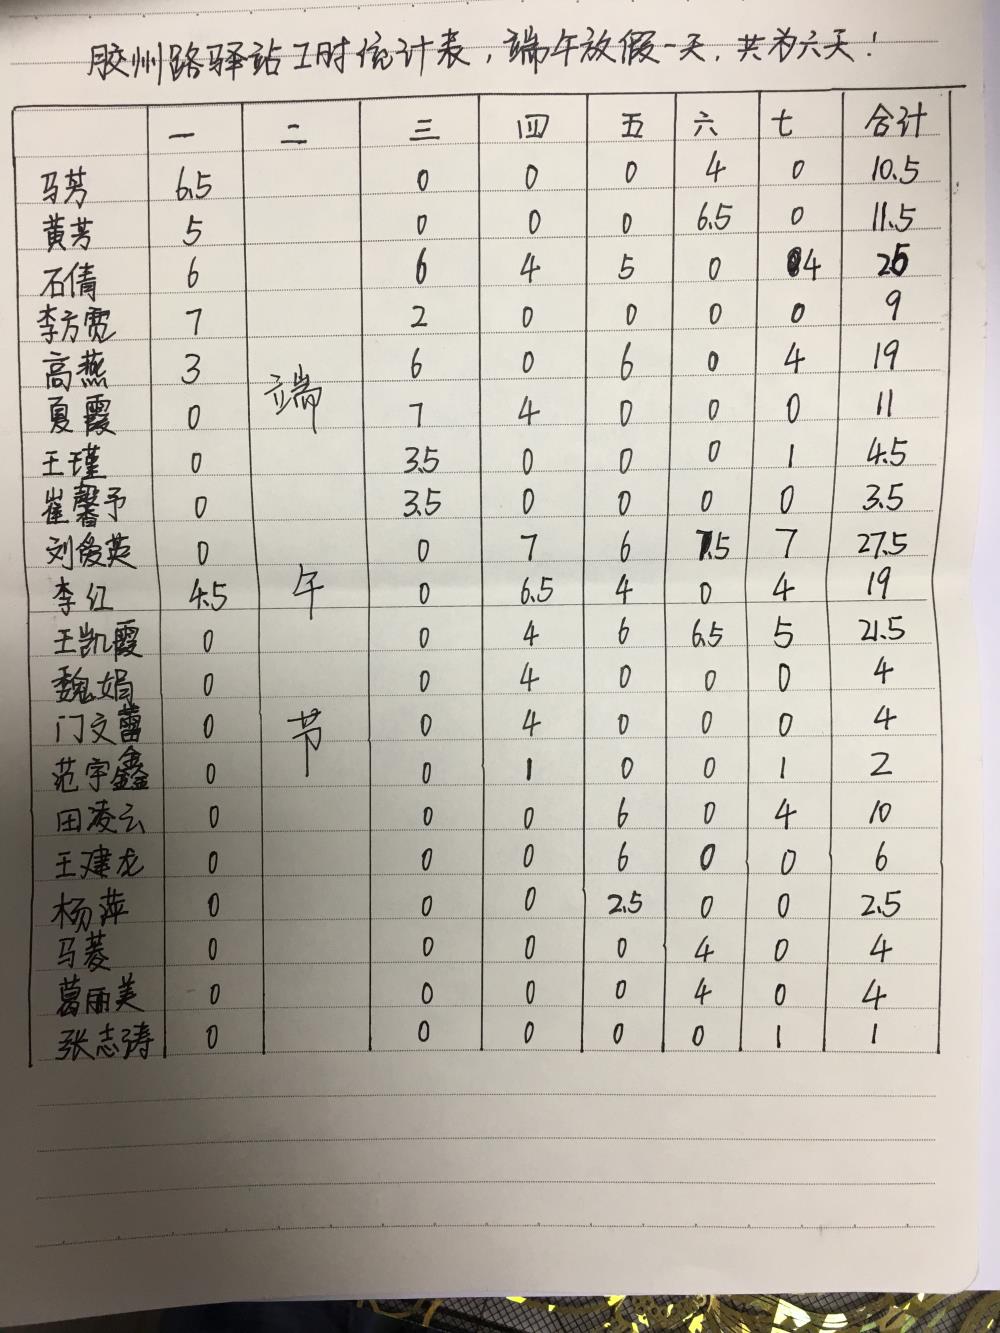 胶州路驿站工时统计表，端午放假一天，共为六天！
一 二 三 四 五 六 七 合计
马芳 6.5 0 0 0 4 0 10.5
黄芳 5 0 0 0 6.5 0 11.5
石倩 6 6 4 5 0 4 25
李方宽 7 2 0 0 0 0 9
高燕 3 端 6 0 6 0 4 19
夏霞 0 7 4 0 0 0 11
王瑾 0 3.5 0 0 0 1 4.5
崔馨予 0 3.5 0 0 0 0 3.5
刘爱英 0 0 7 6 7.5 7 27.5
李红 4.5 午 0 6.5 4 0 4 19
王凯霞 0 0 4 6 6.5 5 21.5
魏娟 0 0 4 0 0 0 4
门文蕾 0 节 0 4 0 0 0 4
范宇鑫 0 0 1 0 0 1 2
田凌云 0 0 0 6 0 4 10
王建龙 0 0 0 6 0 0 6
杨萍 0 0 0 2.5 0 0 2.5
马菱 0 0 0 0 4 0 4
葛丽美 0 0 0 0 4 0 4
张志涛 0 0 0 0 0 1 1